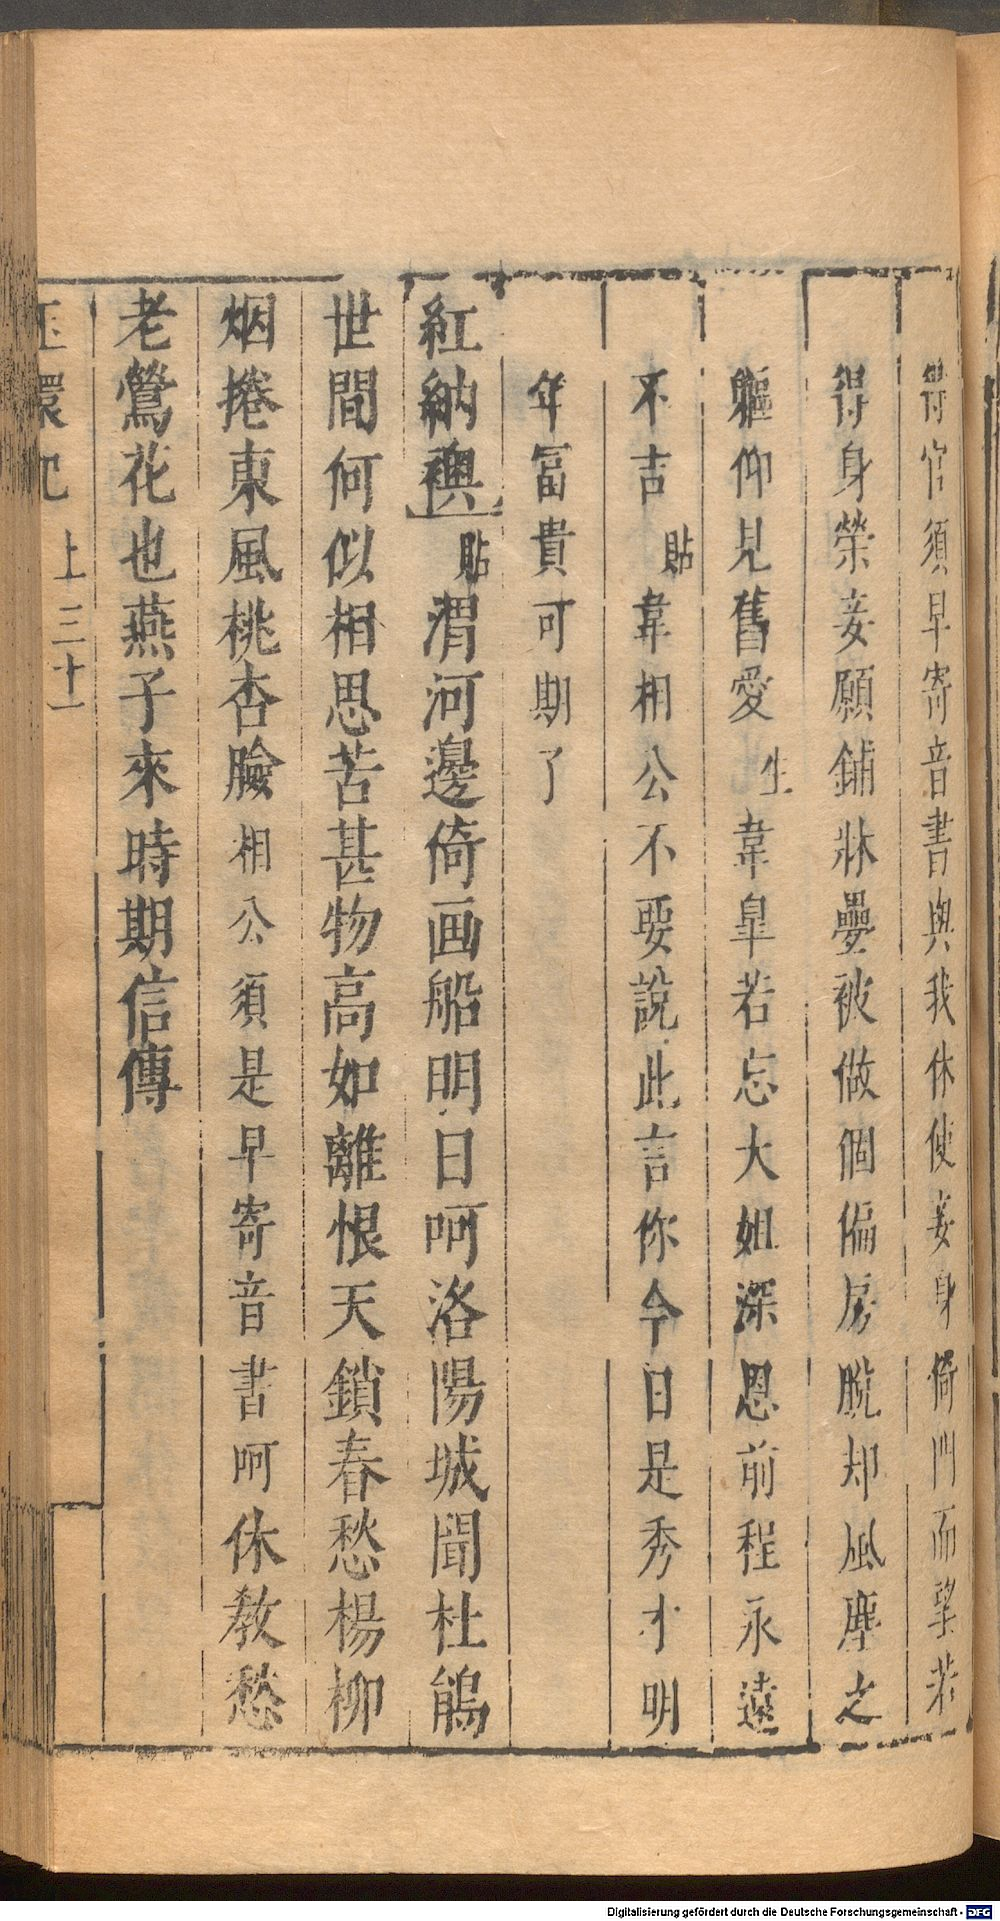 得官須早寄音書與我休使妾身倚門而望若
得身榮妾願鋪牀疊被做個偏房脫却風塵之
軀仰見舊愛生韋皐若忘大姐深恩前程永遠
不吉貼韋相公不要說此言你今日是秀才明
年富貴可期了
紅衲襖貼渭河邊倚画船明日呵洛陽城聞杜鵑
世間何似相思苦甚物高如離恨天鎖春愁楊柳
烟捲東風桃杏臉相公須是早寄音書呵休教愁
老鶯花也燕子來時期信傳
玉環記 上 三十一
Digitalisierung gefördert durch die Deutsche Forschungsgemeinschaft - DFG